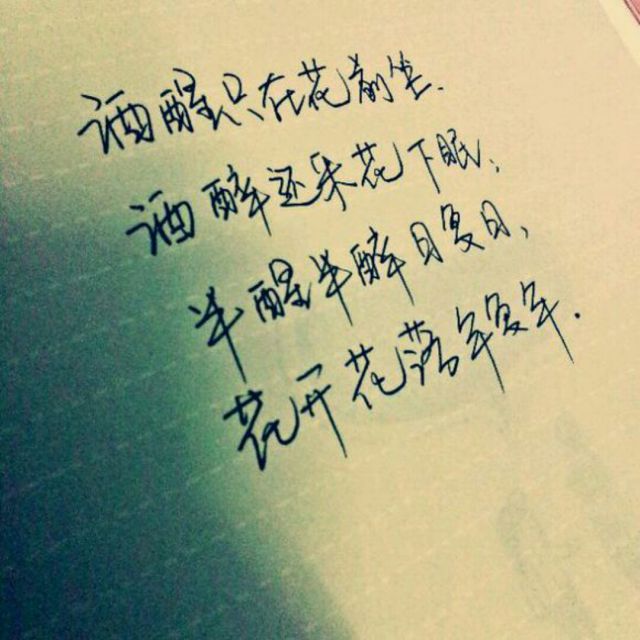 酒醒只在花前坐.
酒醉还来花下眠、
半醒半醉日复日,
花开花落年复年.